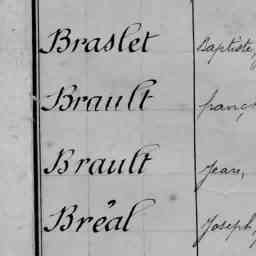 Braslet Baptiste,
Brault
Brault Jean,
Bréal Joseph,